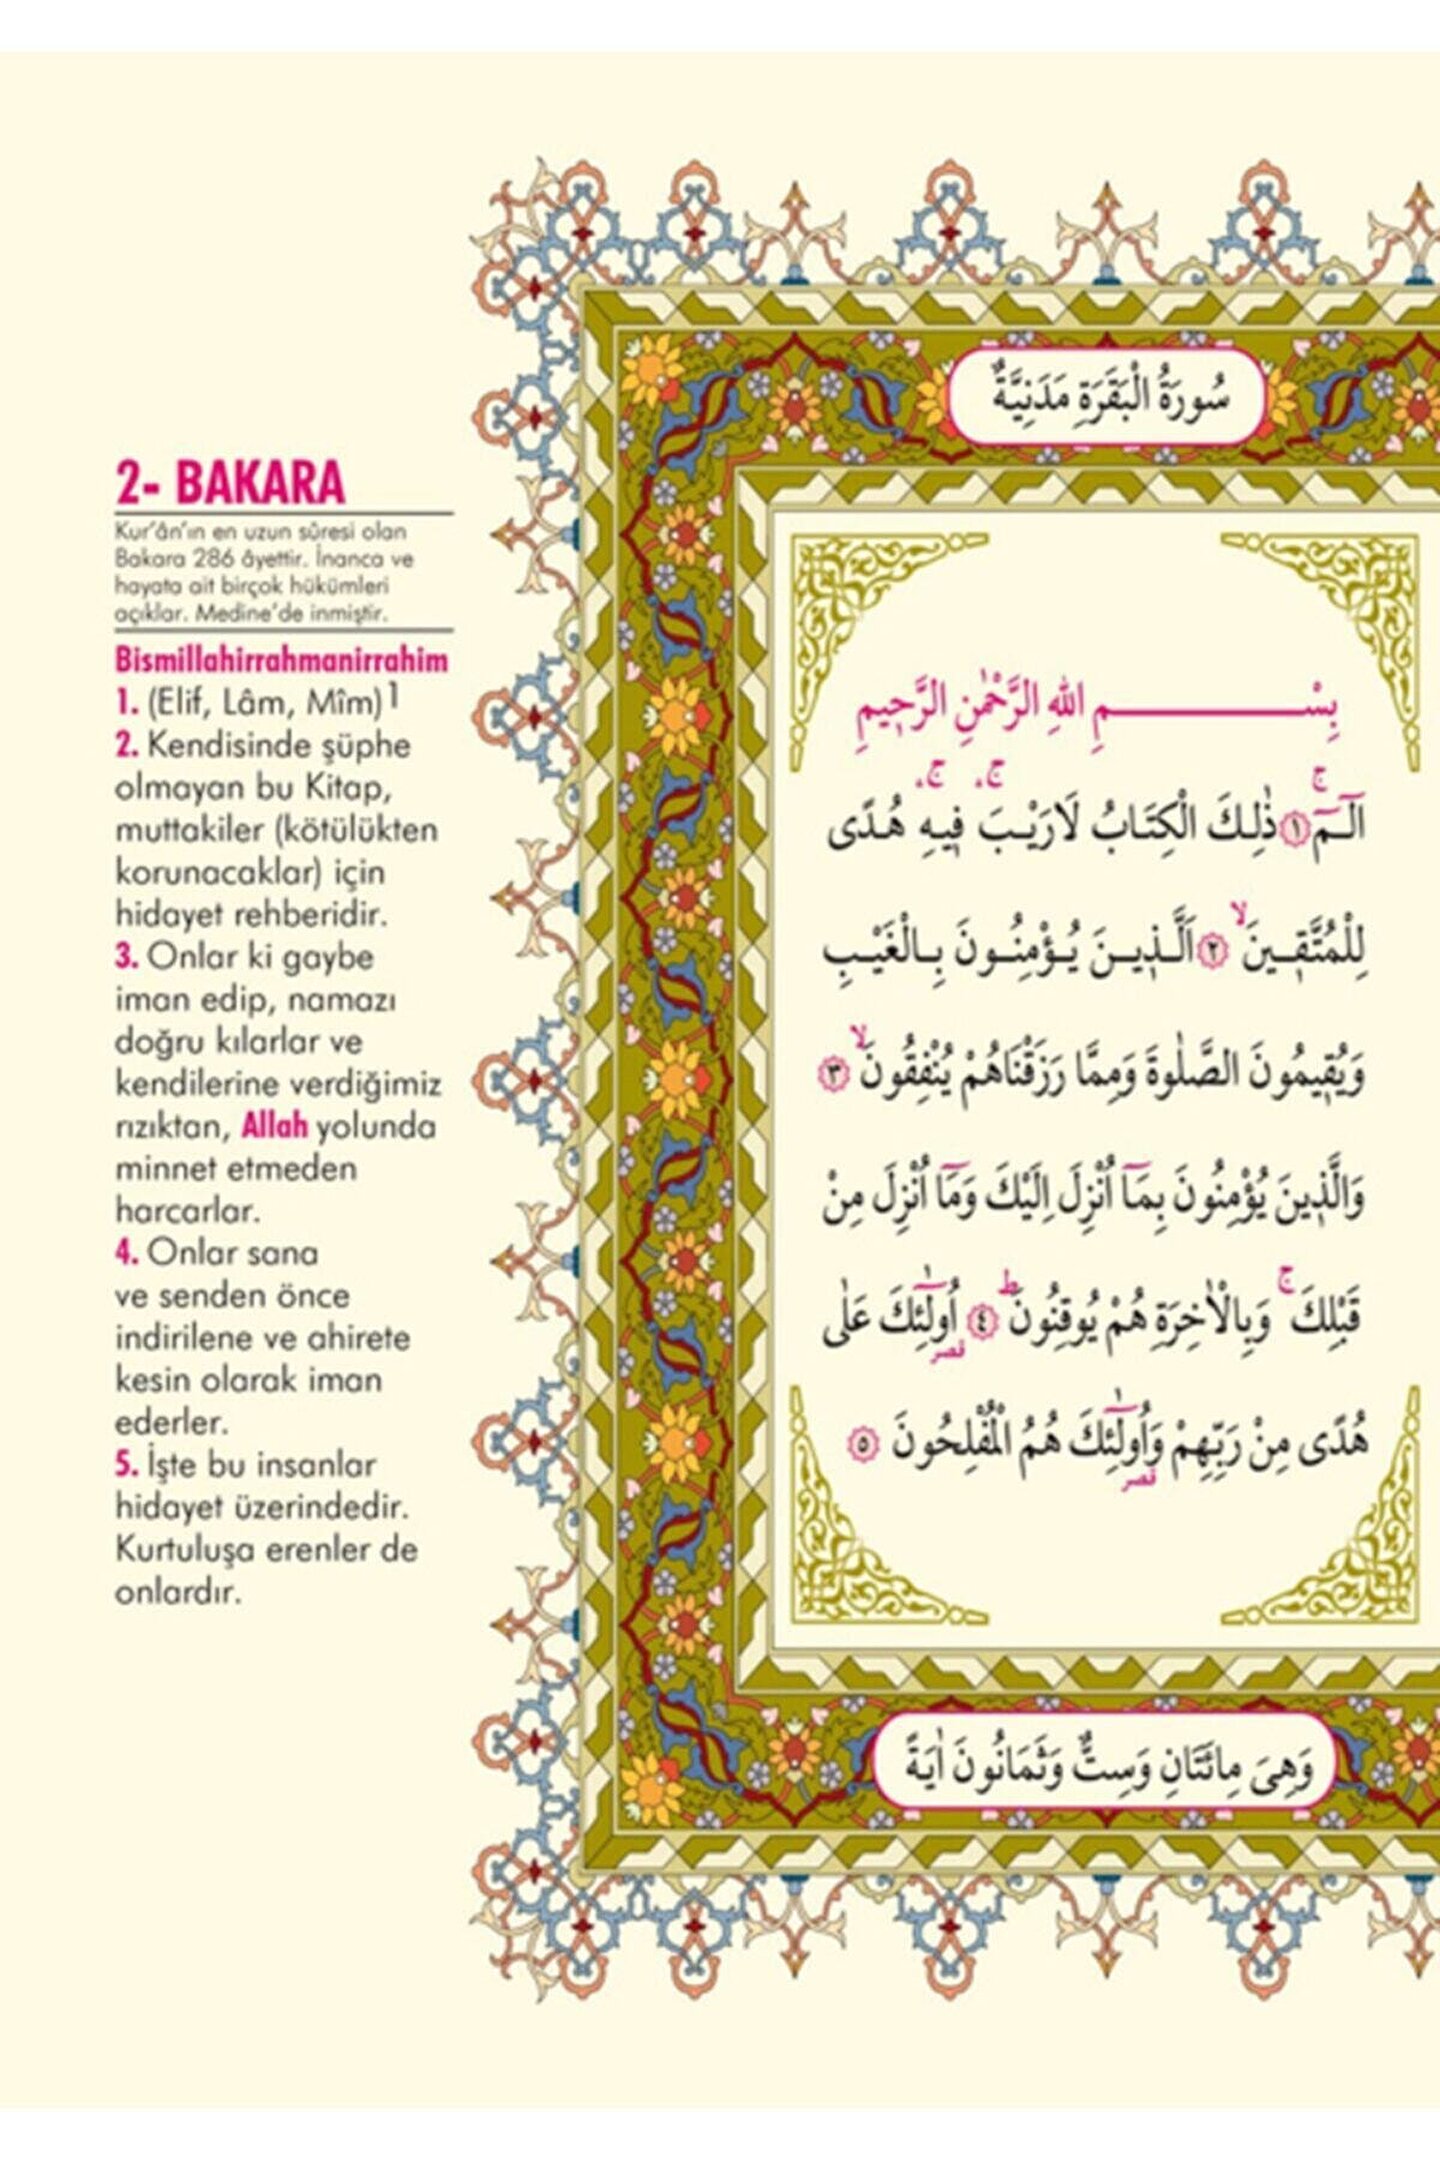 2- BAKARA
Kur'ân'ın en uzun sûresi olan
Bakara 286 âyettir. İnanca ve
hayata ait birçok hükümleri
açıklar. Medîne'de inmiştir.
Bismillahirrahmanirrahim
1. (Elif, Lâm, Mîm)1
2. Kendisinde şüphe
olmayan bu Kitap,
muttakiler (kötülükten
korunacaklar) için
hidayet rehberidir.
3. Onlar ki gaybe
iman edip, namazı
doğru kılarlar ve
kendilerine verdiğimiz
rızıktan, Allah yolunda
minnet etmeden
harcarlar.
4. Onlar sana
ve senden önce
indirilene ve ahirete
kesin olarak iman
ederler.
5. İşte bu insanlar
hidayet üzerindedir.
Kurtuluşa erenler de
onlardır.
سُورَةُ الْبَقَرَةِ مَدَنِيَّةٌ
بِسْمِ اللهِ الرَّحْمٰنِ الرَّحِيمِ
الٓمٓ ۚ ﴿١﴾ ذٰلِكَ الْكِتَابُ لَارَيْبَ ۚۛ فِيهِ ۚۛ هُدًى
لِلْمُتَّقِينَ ۙ ﴿٢﴾ اَلَّذِينَ يُؤْمِنُونَ بِالْغَيْبِ
وَيُقِيمُونَ الصَّلٰوةَ وَمِمَّا رَزَقْنَاهُمْ يُنْفِقُونَ ۙ ﴿٣﴾
وَالَّذِينَ يُؤْمِنُونَ بِمَٓا اُنْزِلَ اِلَيْكَ وَمَٓا اُنْزِلَ مِنْ
قَبْلِكَ ۚ وَبِالْاٰخِرَةِ هُمْ يُوقِنُونَ ۜ ﴿٤﴾ اُولٰٓئِكَ عَلٰى
هُدًى مِنْ رَبِّهِمْ وَاُولٰٓئِكَ هُمُ الْمُفْلِحُونَ ﴿٥﴾
وَهِىَ مِائَتَانِ وَسِتٌّ وَثَمَانُونَ اٰيَةً